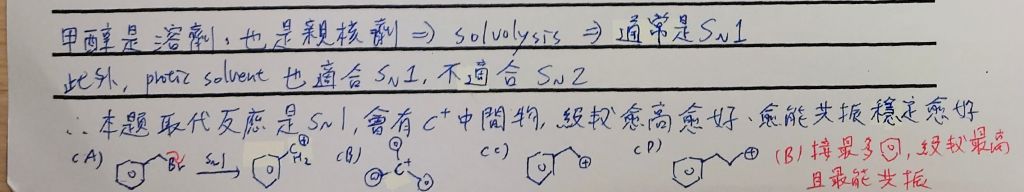 甲醇是溶劑,也是親核劑 ⇒ solvolysis ⇒ 通常是SN1
此外, protic solvent 也適合 SN1, 不適合 SN2
∴ 本題取代反應是SN1, 會有 C⁺中間物, 級數愈高愈好、愈能共振穩定愈好
(A) Br SN1 C⁺ H₂ (B) C⁺ (C) ⊕ (D) ⊕ (B)接最多⌬, 級數最高
且最能共振